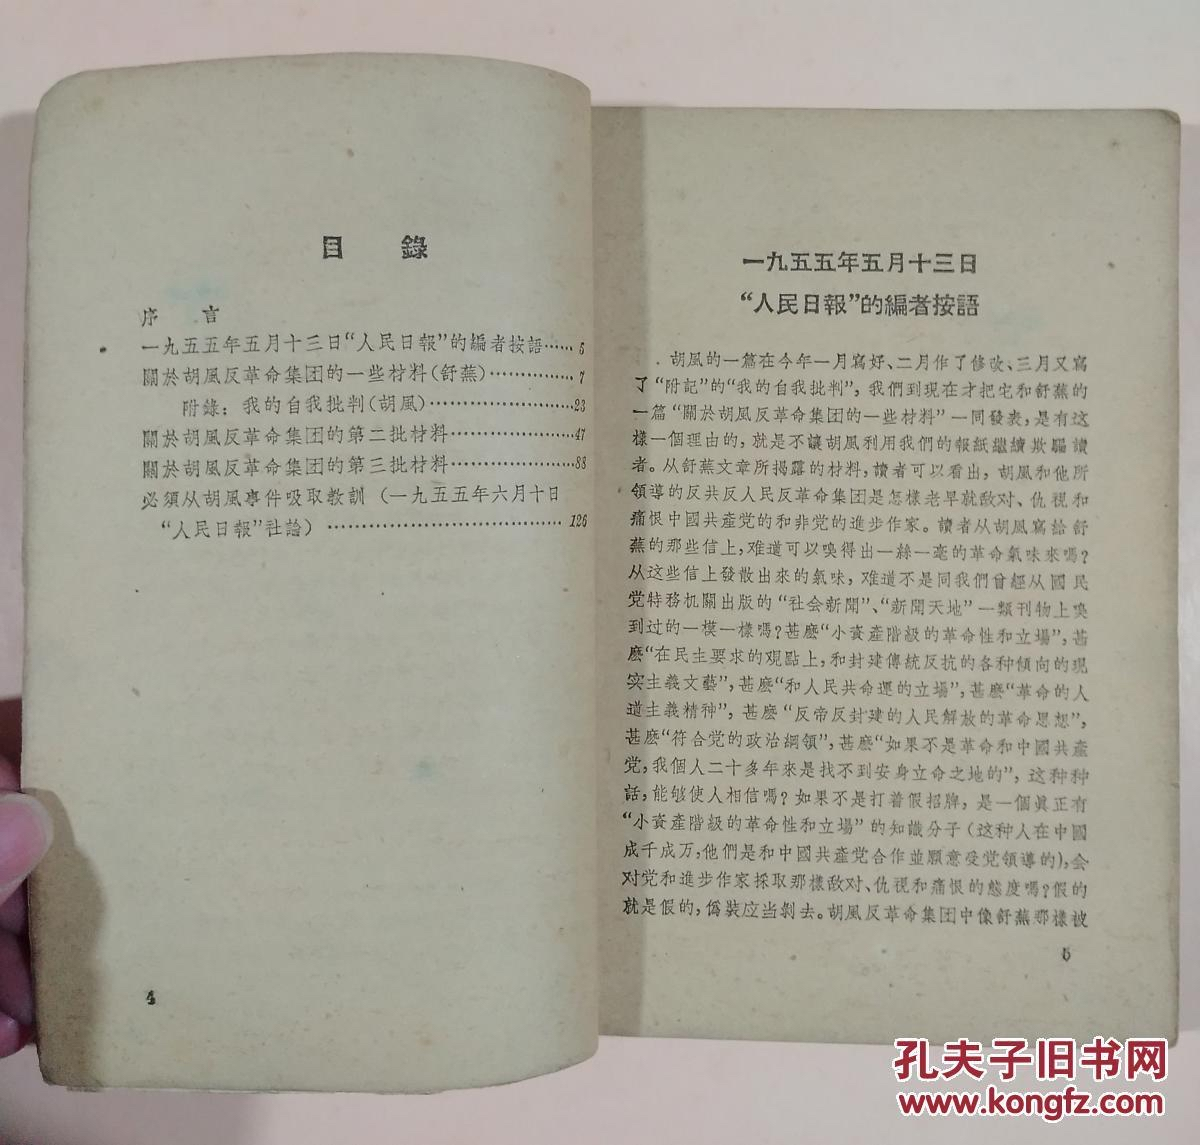 目 錄
序 言
一九五五年五月十三日“人民日報”的編者按語…… 5
關於胡風反革命集团的一些材料(舒蕪)…………… 7
附錄：我的自我批判(胡風)……………………23
關於胡風反革命集团的第二批材料………………47
關於胡風反革命集团的第三批材料………………88
必須从胡風事件吸取教訓（一九五五年六月十日
“人民日報”社論）………………………………126
4
一九五五年五月十三日
“人民日報”的編者按語
胡風的一篇在今年一月寫好、二月作了修改、三月又寫
了“附記”的“我的自我批判”，我們到現在才把它和舒蕪的
一篇“關於胡風反革命集团的一些材料”一同發表，是有这
樣一個理由的，就是不讓胡風利用我們的報紙繼續欺騙讀
者。从舒蕪文章所揭露的材料，讀者可以看出，胡風和他所
領導的反共反人民反革命集团是怎樣老早就敌对、仇視和
痛恨中國共產党的和非党的進步作家。讀者从胡風寫給舒
蕪的那些信上，难道可以嗅得出一絲一毫的革命氣味來嗎？
从这些信上發散出來的氣味，难道不是同我們曾經从國民
党特務机關出版的“社会新聞”、“新聞天地”一類刊物上嗅
到过的一模一樣嗎？甚麽“小資產階級的革命性和立場”，甚
麽“在民主要求的观點上，和封建傳統反抗的各种傾向的現
实主義文藝”，甚麽“和人民共命運的立場”，甚麽“革命的人
道主義精神”，甚麽“反帝反封建的人民解放的革命思想”，
甚麽“符合党的政治綱領”，甚麽“如果不是革命和中國共產
党，我個人二十多年來是找不到安身立命之地的”，这种种
話，能够使人相信嗎？如果不是打着假招牌，是一個眞正有
“小資產階級的革命性和立場”的知識分子（这种人在中國
成千成万，他們是和中國共產党合作並願意受党領導的），会
对党和進步作家採取那樣敌对、仇視和痛恨的態度嗎？假的
就是假的，偽裝应当剝去。胡風反革命集团中像舒蕪那樣被
5
孔夫子旧书网
www.kongfz.com